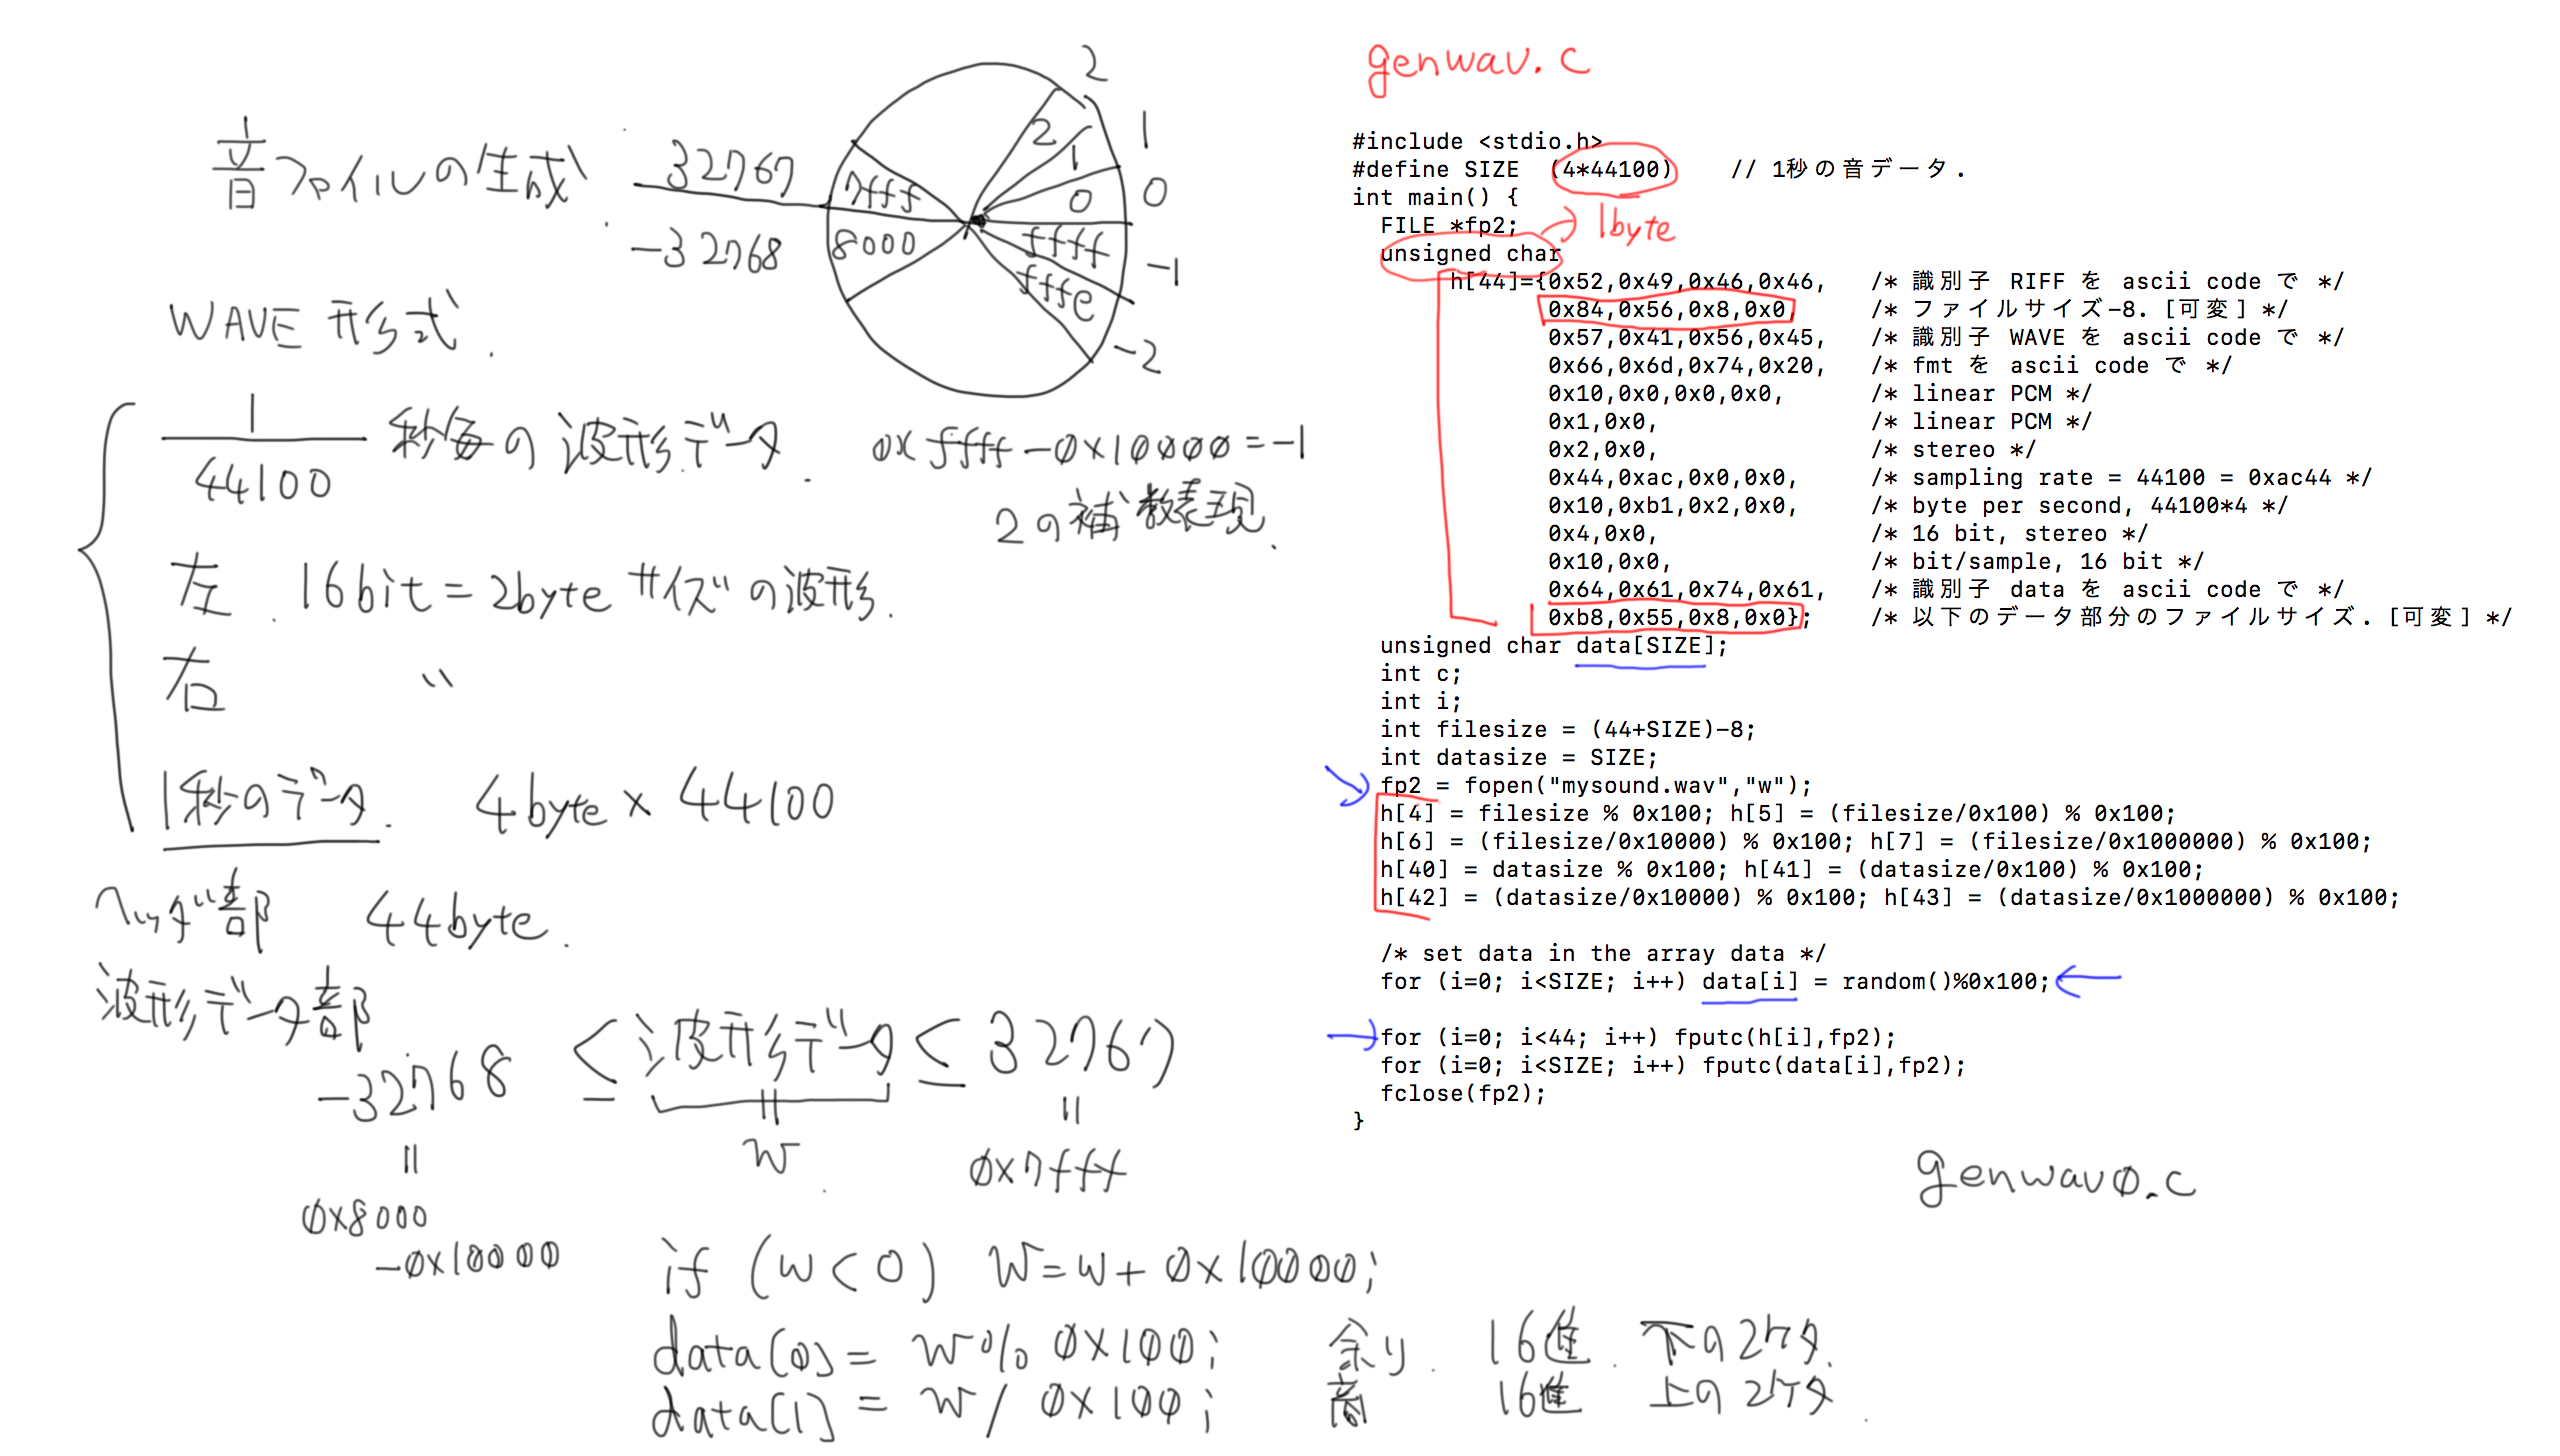 音ファイルの生成.
WAVE 形式.
1
44100
秒毎の波形データ.
左. 16bit = 2byte サイズの波形.
右 〃
1秒のデータ. 4byte × 44100
ヘッダ部 44byte.
波形データ部
-32768 ≤ 波形データ ≤ 32767
|| || ||
0x8000 w. 0x7fff
-0x10000
if (w<0) w=w+0x10000;
data[0] = w% 0x100; 余り. 16進. 下の2ケタ.
data[1] = w/ 0x100; 商 16進 上の2ケタ.
32767
-32768
7fff
8000
2
1
0
ffff
fffe
2
1
0
-1
-2
0xffff-0x10000=-1
2の補数表現.
genwav.c
#include <stdio.h>
#define SIZE (4*44100) // 1秒の音データ.
int main() {
FILE *fp2;
1byte
unsigned char
h[44]={0x52,0x49,0x46,0x46, /* 識別子 RIFF を ascii code で */
0x84,0x56,0x8,0x0, /* ファイルサイズ-8. [可変] */
0x57,0x41,0x56,0x45, /* 識別子 WAVE を ascii code で */
0x66,0x6d,0x74,0x20, /* fmt を ascii code で */
0x10,0x0,0x0,0x0, /* linear PCM */
0x1,0x0, /* linear PCM */
0x2,0x0, /* stereo */
0x44,0xac,0x0,0x0, /* sampling rate = 44100 = 0xac44 */
0x10,0xb1,0x2,0x0, /* byte per second, 44100*4 */
0x4,0x0, /* 16 bit, stereo */
0x10,0x0, /* bit/sample, 16 bit */
0x64,0x61,0x74,0x61, /* 識別子 data を ascii code で */
0xb8,0x55,0x8,0x0}; /* 以下のデータ部分のファイルサイズ. [可変] */
unsigned char data[SIZE];
int c;
int i;
int filesize = (44+SIZE)-8;
int datasize = SIZE;
fp2 = fopen("mysound.wav","w");
h[4] = filesize % 0x100; h[5] = (filesize/0x100) % 0x100;
h[6] = (filesize/0x10000) % 0x100; h[7] = (filesize/0x1000000) % 0x100;
h[40] = datasize % 0x100; h[41] = (datasize/0x100) % 0x100;
h[42] = (datasize/0x10000) % 0x100; h[43] = (datasize/0x1000000) % 0x100;
/* set data in the array data */
for (i=0; i<SIZE; i++) data[i] = random()%0x100;
for (i=0; i<44; i++) fputc(h[i],fp2);
for (i=0; i<SIZE; i++) fputc(data[i],fp2);
fclose(fp2);
}
genwav0.c